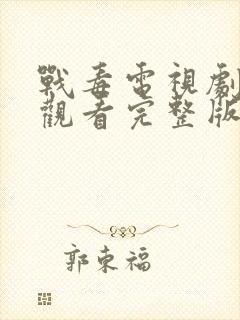 戰毒電視劇
觀看完整版
郭東福